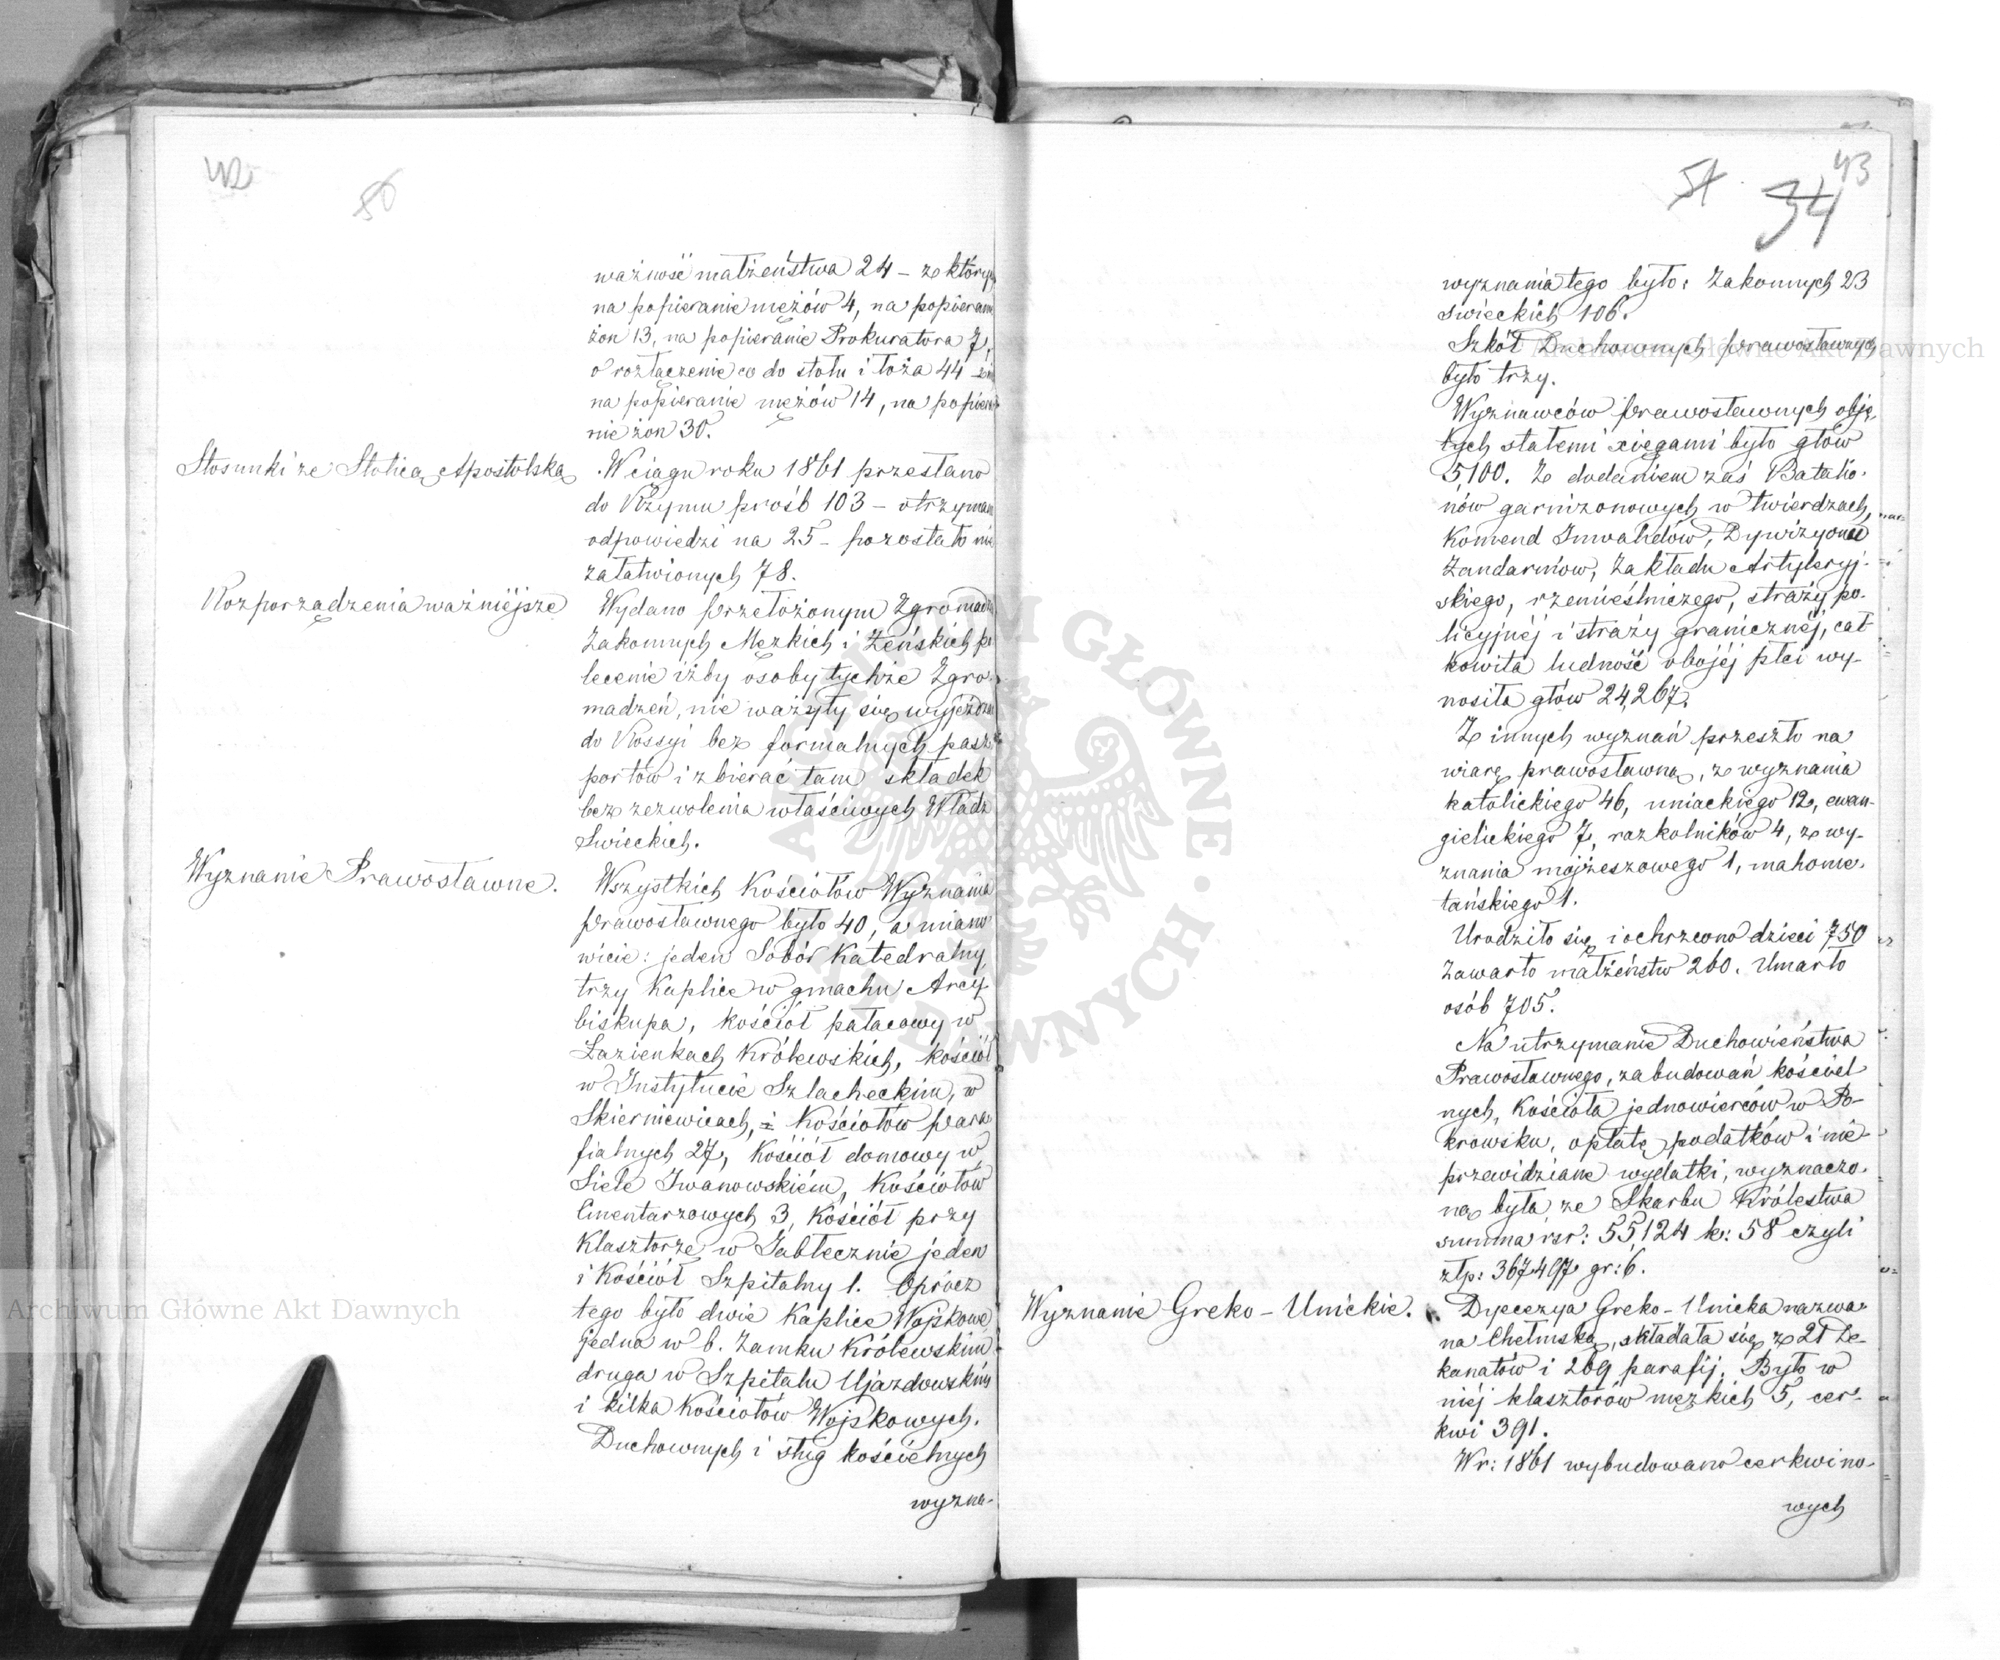 42
50
ważność małżeństwa 24 – z który
na popieranie mężów 4, na popieran
żon 13, na popieranie Prokuratora 7,
o rozłączenie co do stołu i łoża 44
na popieranie mężów 14, na popiera
nie żon 30.
Stosunki ze Stolicą Apostolską
W ciągu roku 1861 przesłano
do Rzymu prośb 103 – otrzyman
odpowiedzi na 25 – pozostało nie
załatwionych 78.
Rozporządzenia ważniejsze
Wydano przełożonym Zgromadz
Zakonnych Męzkich i Żeńskich po
lecenie iżby osoby tychże Zgro-
madzeń, nie ważyły się wyjeżdżać
do Rossyi bez formalnych pasz
portów i zbierać tam składek
bez zezwolenia właściwych Władz
Świeckich.
Wyznanie Prawosławne.
Wszystkich Kościołów Wyznania
prawosławnego było 40, a miano
wicie: jeden Sobór Katedralny,
trzy Kaplice w gmachu Arcy-
biskupa, kościół pałacowy w
Łazienkach Królewskich, kościół
w Instytucie Szlacheckim, w
Skierniewicach, Kościołów para
fialnych 27, Kościół domowy w
Siele Iwanowskiém, Kościołów
Cmentarzowych 3, Kościół przy
Klasztorze w Jabłecznie jeden
i Kościół Szpitalny 1. Oprócz
tego było dwie Kaplice Wojskowe
jedna w b. Zamku Królewskim
druga w Szpitalu Ujazdowskim
i kilka Kościołów Wojskowych.
Duchownych i sług kościelnych
wyzna-
43
51
34
wyznania tego było: Zakonnych 23
świeckich 106.
Szkół Duchownych prawosławnych
było trzy.
Wyznawców prawosławnych obję-
tych stałemi xięgami było głów
5,100. Z dodaniem zaś Batalio-
nów garnizonowych w twierdzach,
Komend Inwalidów, Dywizyonu
Żandarmów, Zakładu Artyleryj-
skiego, rzemieślniczego, straży po-
licyjnéj i straży granicznéj, cał
kowita ludność obojéj płci wy-
nosiła głów 24,267.
Z innych wyznań przeszło na
wiarę prawosławną, z wyznania
katolickiego 46, uniackiego 12, ewan-
gielickiego 7, razkolników 4, z wy-
znania mojżeszowego 1, mahome-
tańskiego 1.
Urodziło się i ochrzcono dzieci 750
Zawarto małżeństw 260. Umarło
osób 705.
Na utrzymanie Duchowieństwa
Prawosławnego, zabudowań kościel
nych, Kościoła jednowierców w Po-
krowsku, opłatę podatków i nie-
przewidziane wydatki, wyznaczo-
na była ze Skarbu Królestwa
summa rsr: 55,124 k: 58 czyli
złp: 367497 gr: 6.
Wyznanie Greko – Unickie.
Dyecezya Greko – Unicka nazwa-
na Chełmską, składała się z 21 De-
kanatów i 269 parafij. Było w
niéj klasztorów męzkich 5, cer-
kwi 391.
W r: 1861 wybudowano cerkwi no-
wych
Archiwum Główne Akt Dawnych
Archiwum Główne Akt Dawnych
ARCHIWUM GŁÓWNE AKT DAWNYCH